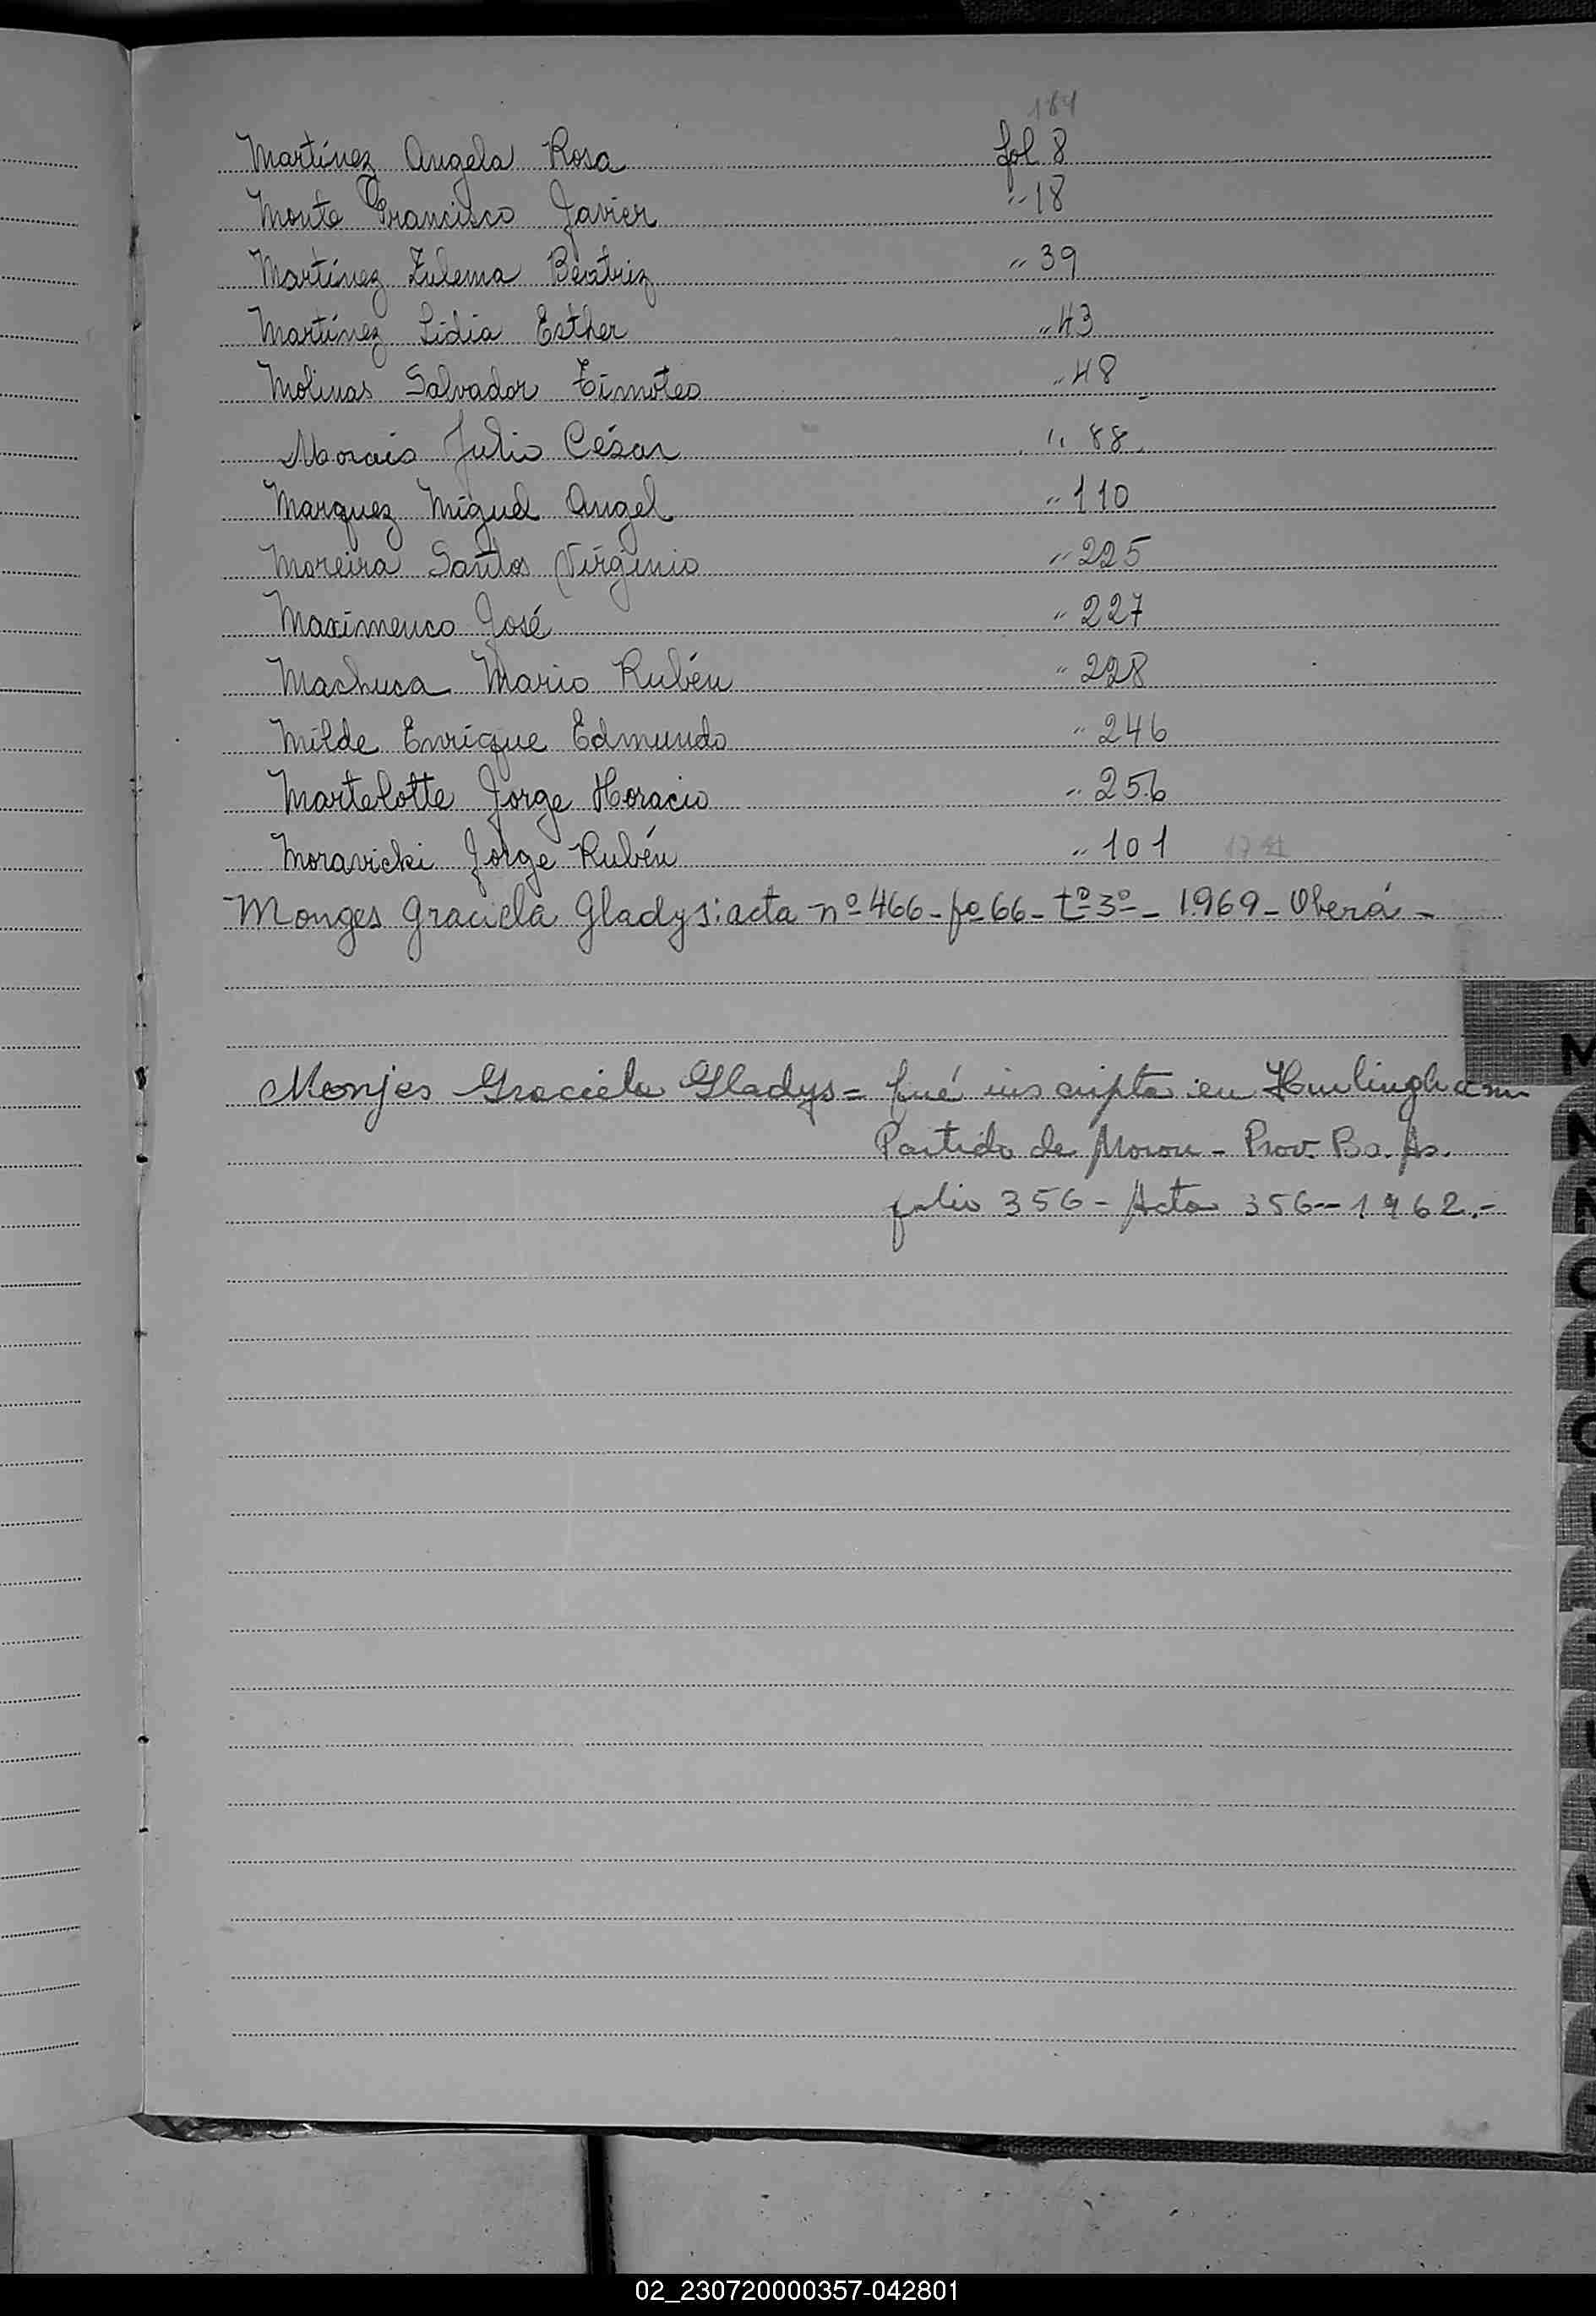 Martínez Angela Rosa fol 8
Monte Francisco Javier " 18
Martínez Zulema Beatriz " 39
Martínez Lidia Esther " 43
Molinas Salvador Timoteo " 48
Morais Julio César " 88
Marquez Miguel Angel " 110
Moreira Santos Virginio " 225
Maximenco José " 227
Machuca Mario Rubén " 228
Milde Enrique Edmundo " 246
Martelotte Jorge Horacio " 256
Moravicki Jorge Rubén " 101
Monges Graciela Gladys: acta nº 466 - fº 66 - tº 3º - 1969 - Oberá -
Monjes Graciela Gladys = fué inscripta en Hurlingham
Partido de Moron - Prov. Bs. As.
folio 356 - Acta 356 -- 1962.-
M
N
Ñ
O
02_230720000357-042801